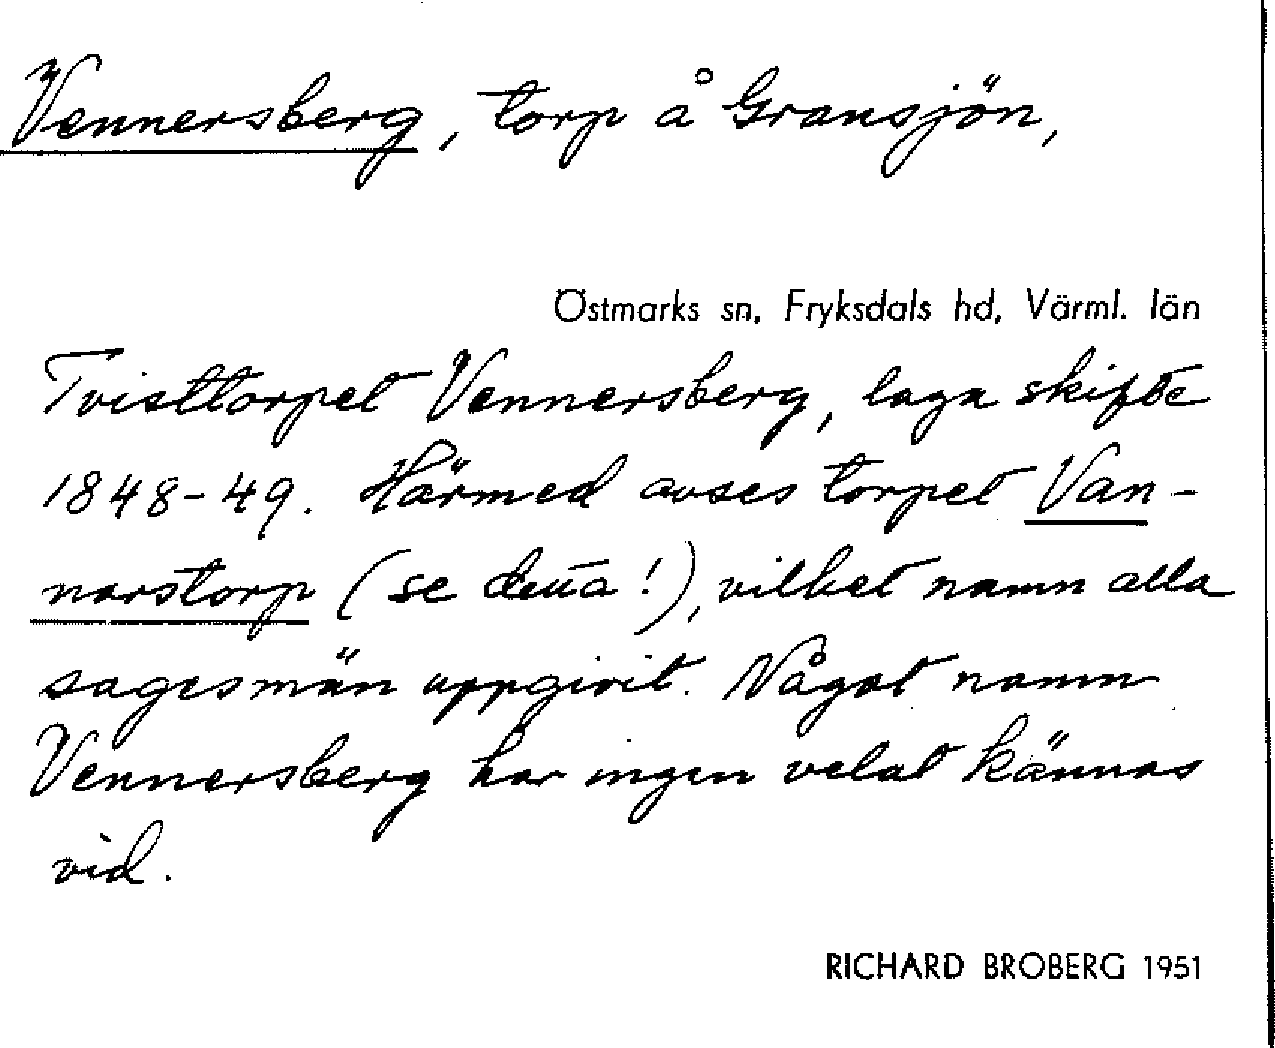 Vennersberg, torp å Gransjön,
Östmarks sn, Fryksdals hd, Värml. län
Tvisttorpet Vennersberg, laga skifte
1848-49. Härmed avses torpet Van-
narstorp (se detta!), vilket namn alla
sagesmän uppgivit. Något namn
Vennersberg har ingen velat kännas
vid.
RICHARD BROBERG 1951